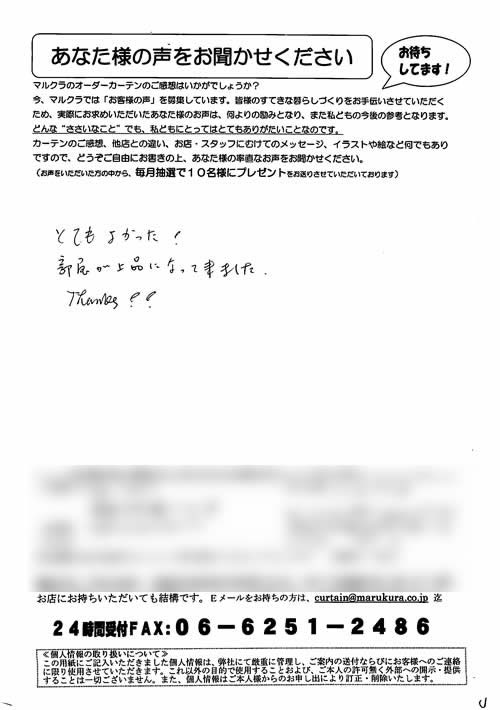 あなた様の声をお聞かせください
お待ち
してます！
マルクラのオーダーカーテンのご感想はいかがでしょうか？
今、マルクラでは「お客様の声」を募集しています。皆様のすてきな暮らしづくりをお手伝いさせていただく
ため、実際にお求めいただいたあなた様のお声は、何よりの励みとなり、また私どもの今後の参考となります。
どんな“ささいなこと”でも、私どもにとってはとてもありがたいことなのです。
カーテンのご感想、他店との違い、お店・スタッフにむけてのメッセージ、イラストや絵など何でもあり
ですので、どうぞご自由にお書きの上、あなた様の率直なお声をお聞かせください。
（お声をいただいた方の中から、毎月抽選で１０名様にプレゼントをお送りさせていただいております）
とてもよかった！
部屋が上品になって来ました.
Thanks!!
お店にお持ちいただいても結構です。Eメールをお持ちの方は、curtain@marukura.co.jp 迄
２４時間受付FAX:０６－６２５１－２４８６
≪個人情報の取り扱いについて≫
この用紙にご記入いただきました個人情報は、弊社にて厳重に管理し、ご案内の送付ならびにお客様へのご連絡
に限り使用させていただきます。これ以外の目的で使用することおよび、ご本人の許可無く外部への開示・提供
することは一切ございません。また、個人情報はご本人様からのお申し出により訂正・削除いたします。